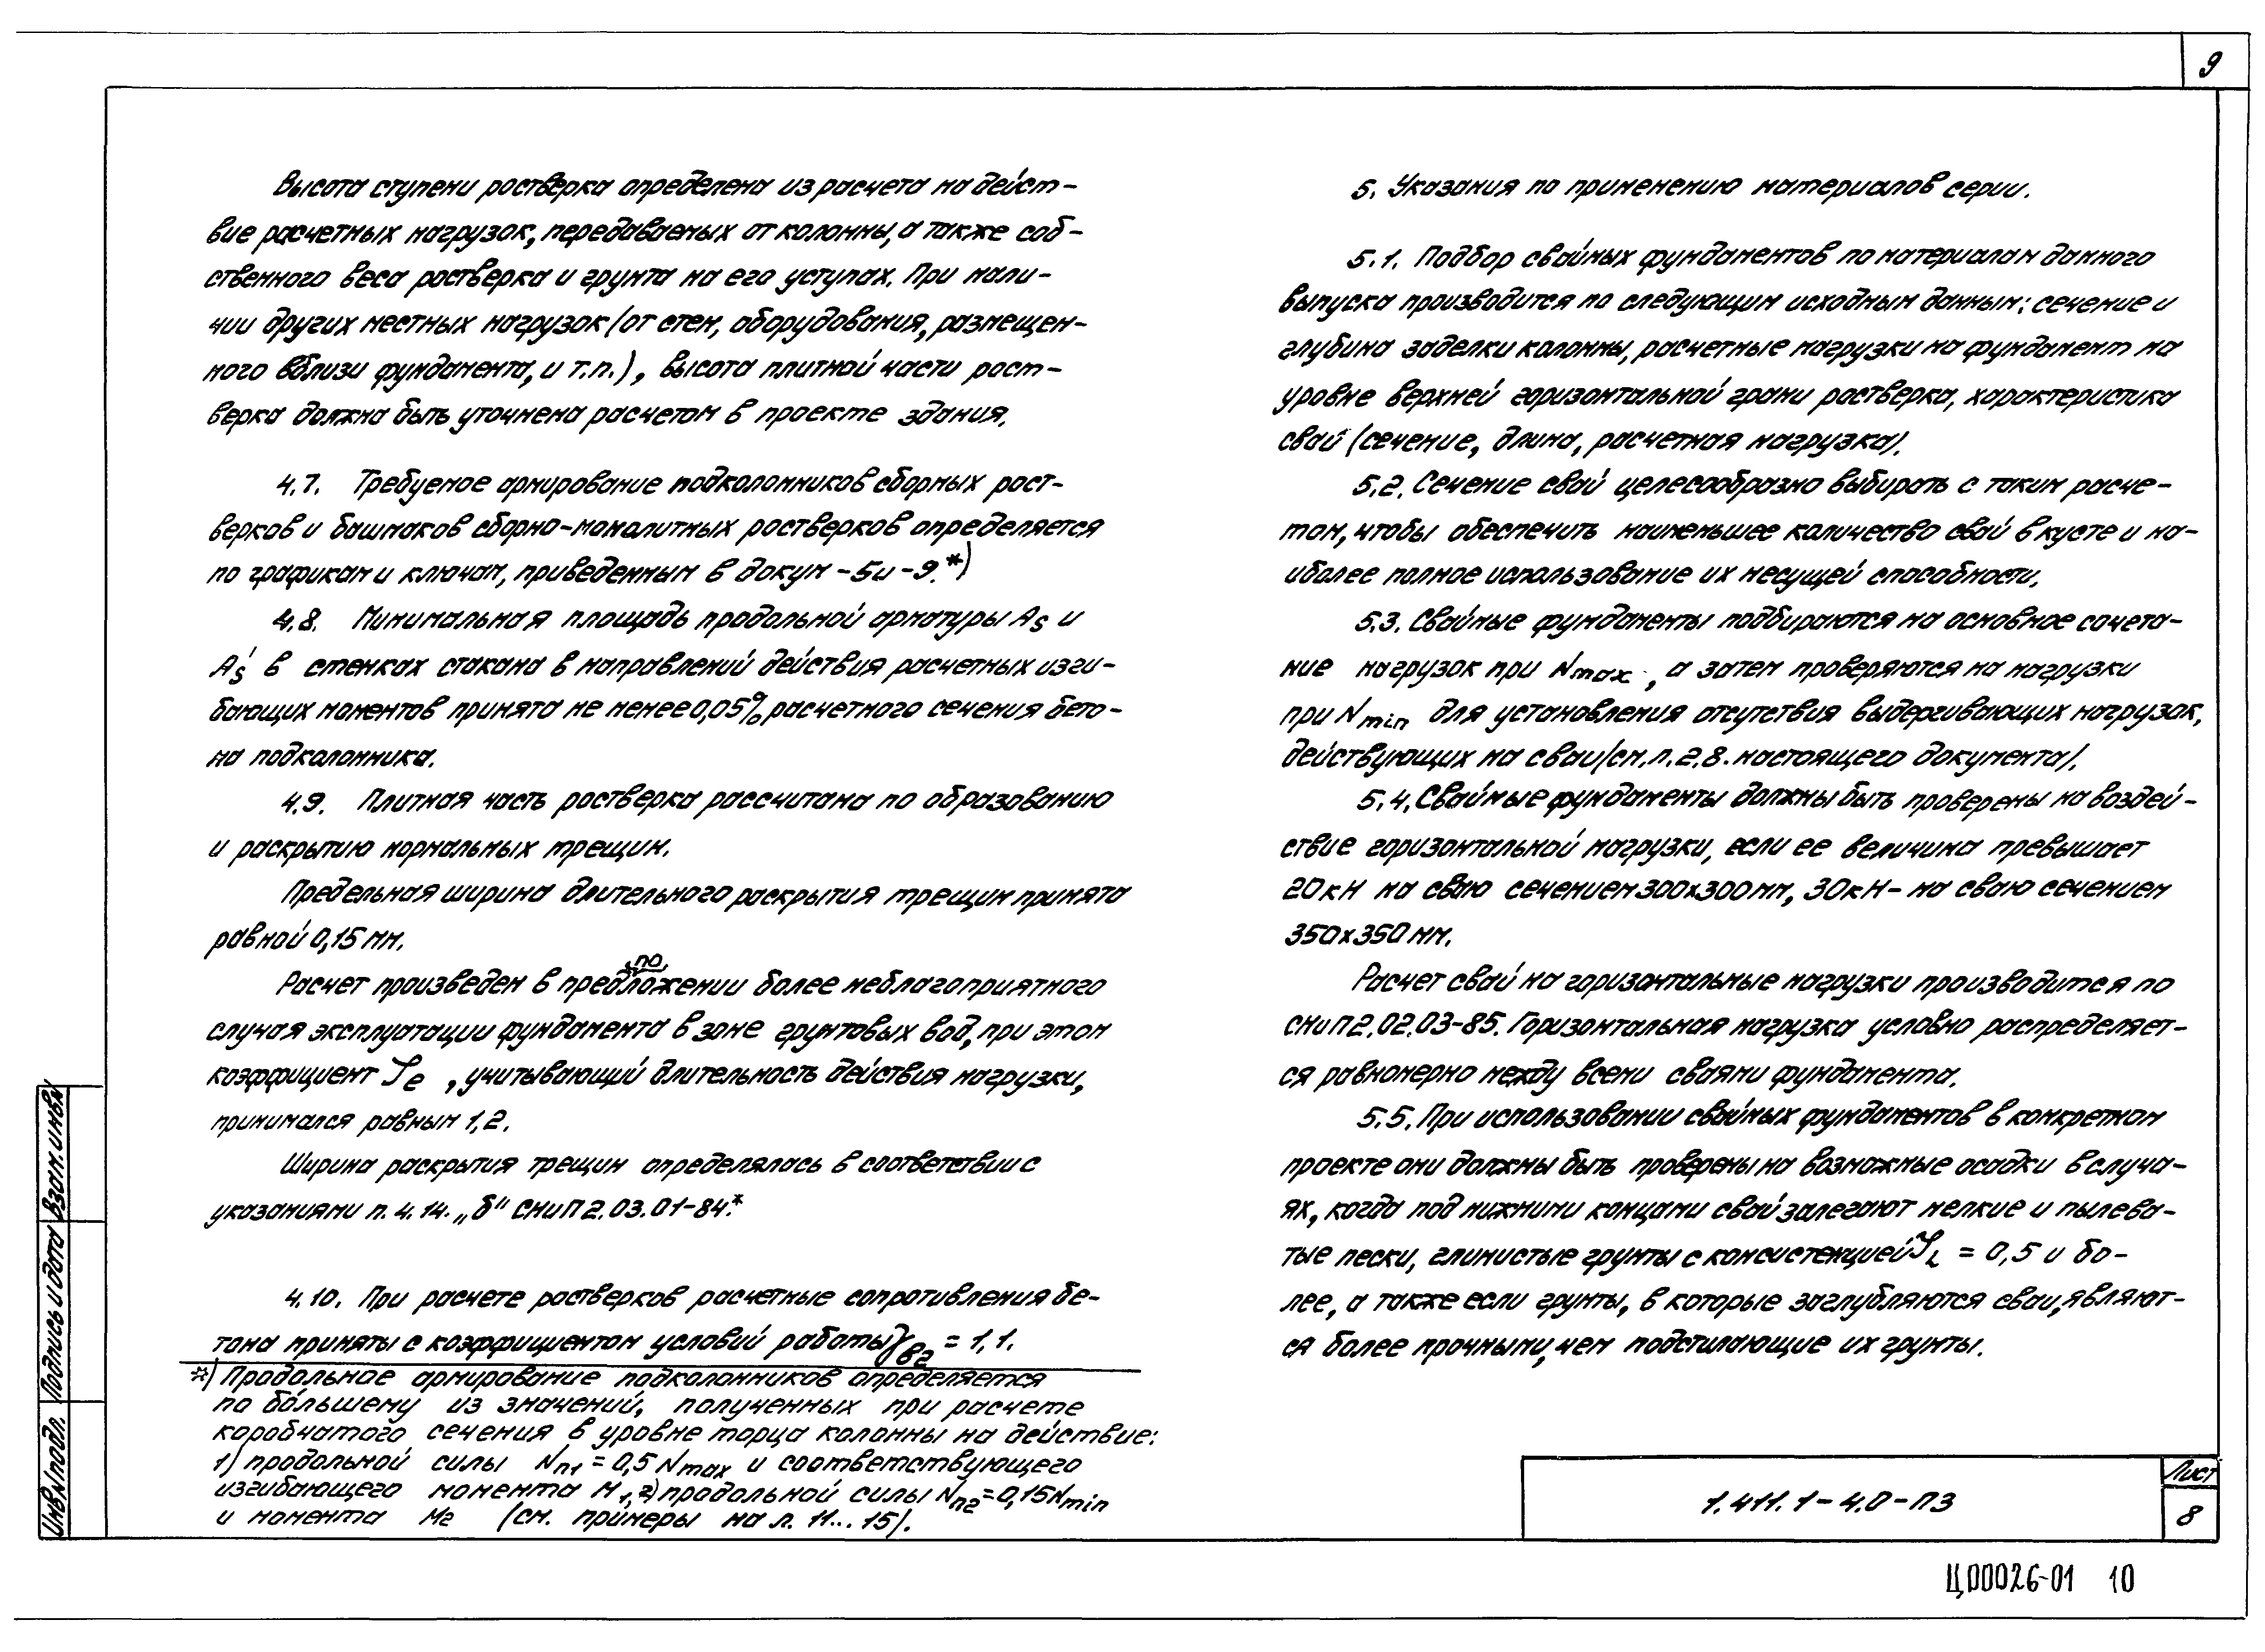 9
Высота ступени ростверка определена из расчета на дейст-
вие расчетных нагрузок, передаваемых от колонны, а также соб-
ственного веса ростверка и грунта на его уступах. При нали-
чии других местных нагрузок (от стен, оборудования, размещен-
ного вблизи фундамента, и т.п.), высота плитной части рост-
верка должна быть уточнена расчетом в проекте здания.
4.7. Требуемое армирование подколонников сборных рост-
верков и башмаков сборно-монолитных ростверков определяется
по графикам и ключам, приведенным в докум -5и -9.*)
4.8. Минимальная площадь продольной арматуры As и
A's в стенках стакана в направлений действия расчетных изги-
бающих моментов принята не менее 0,05% расчетного сечения бето-
на подколонника.
4.9. Плитная часть ростверка рассчитана по образованию
и раскрытию нормальных трещин.
Предельная ширина длительного раскрытия трещин принята
равной 0,15 мм.
по
Расчет произведен в предложении более неблагоприятного
случая эксплуатации фундамента в зоне грунтовых вод, при этом
коэффициент φe , учитывающий длительность действия нагрузки,
принимался равным 1,2.
Ширина раскрытия трещин определялась в соответствии с
указаниями п. 4.14. „б" СНиП 2.03.01-84.*
4.10. При расчете ростверков расчетные сопротивления бе-
тона приняты с коэффициентом условий работы γв2 = 1,1.
*) Продольное армирование подколонников определяется
по бо́льшему из значений, полученных при расчете
коробчатого сечения в уровне торца колонны на действие:
1) продольной силы Nп1 = 0,5 Nmax и соответствующего
изгибающего момента М1, 2) продольной силы Nп2 = 0,15Nmin
и момента М2 (см. примеры на л. 11...15).
5. Указания по применению материалов серии.
5.1. Подбор свайных фундаментов по материалам данного
выпуска производится по следующим исходным данным: сечение и
глубина заделки колонны, расчетные нагрузки на фундамент на
уровне верхней горизонтальной грани ростверка, характеристика
свай (сечение, длина, расчетная нагрузка).
5.2. Сечение свай целесообразно выбирать с таким расче-
том, чтобы обеспечить наименьшее количество свай в кусте и на-
иболее полное использование их несущей способности.
5.3. Свайные фундаменты подбираются на основное сочета-
ние нагрузок при Nmax , а затем проверяются на нагрузки
при Nmin для установления отсутствия выдергивающих нагрузок,
действующих на сваи (см. п. 2.8. настоящего документа).
5.4. Свайные фундаменты должны быть проверены на воздей-
ствие горизонтальной нагрузки, если ее величина превышает
20кН на сваю сечением 300х300мм, 30кН - на сваю сечением
350х350 мм.
Расчет свай на горизонтальные нагрузки производится по
СНиП 2.02.03-85. Горизонтальная нагрузка условно распределяет-
ся равномерно между всеми сваями фундамента.
5.5. При использовании свайных фундаментов в конкретном
проекте они должны быть проверены на возможные осадки в случа-
ях, когда под нижними концами свай залегают мелкие и пылева-
тые пески, глинистые грунты с консистенцией JL = 0,5 и бо-
лее, а также если грунты, в которые заглубляются сваи, являют-
ся более прочными, чем подстилающие их грунты.
Взам. инв.№
Подпись и дата
Инв.№ подл.
1.411.1-4.0-ПЗ
Лист
8
Ц00026-01 10